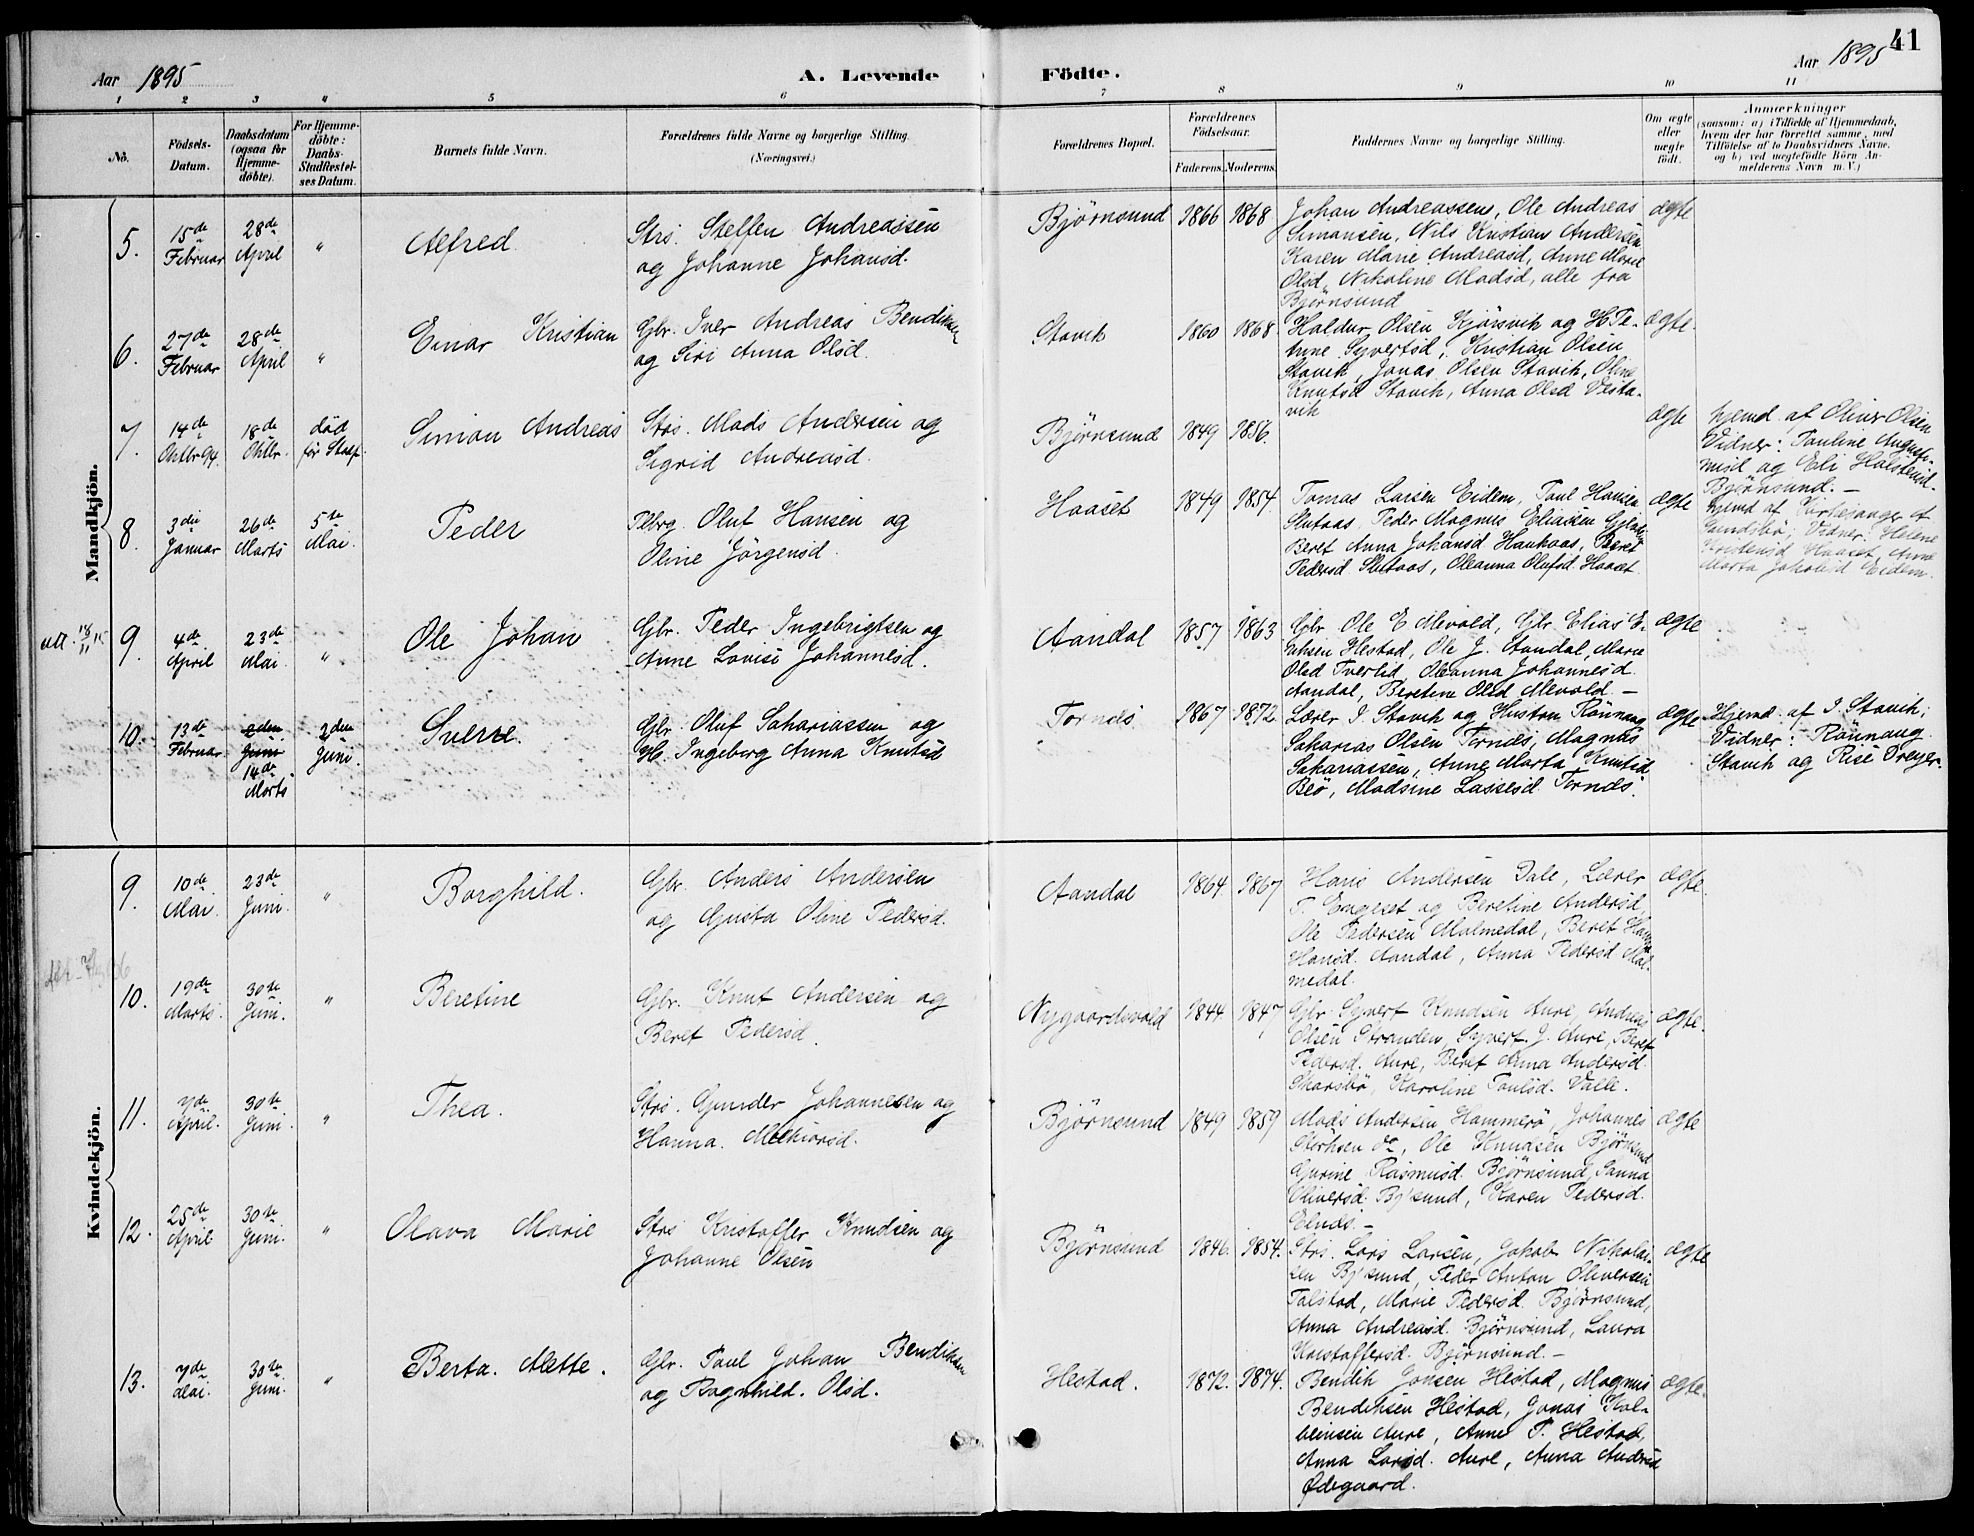 Aar 1895
A. Levende Födte.
Aar 1895
41
1 2 3 4 5 6 7 8 9 10 11
No.
Födsels-
Datum.
Daabsdatum
(ogsaa for
Hjemme-
döbte).
For Hjemme-
döbte:
Daabs-
Stadfæstel-
ses Datum.
Barnets fulde Navn.
Forældrenes fulde Navne og borgerlige Stilling.
(Næringsvei.)
Forældrenes Bopæl.
Forældrenes
Födselsaar.
Faderens. Moderens.
Faddernes Navne og borgerlige Stilling.
Om ægte
eller
uægte
födt.
Anmærkninger
(saasom: a) i Tilfælde af Hjemmedaab,
hvem der har forrettet samme, med
Tilföielse af to Daabsvidners Navne,
og b) ved uægtefödte Börn An-
melderens Navn m.V.)
Mandkjön.
5.
15de
Februar
28de
April
"
Alfred
Strs. Steffen Andreassen
og Johanne Johansd.
Bjørnsund
1866
1868
Johan Andreassen, Ole Andreas
Simonsen, Nils Kristian Andersen
Karen Marie Andreasd, Anne Marie
Olsd, Nikoline Madsd, alle fra
Bjørnsund
ægte
6.
27de
Februar
28de
April
"
Einar Kristian
Gbr. Iver Andreas Bendiksen
og Siri Anna Olsd.
Stavik
1860
1868.
Haldur Olsen Kjørsvik og H. Pe-
trine Syvertsd, Kristian Olsen
Stavik, Jonas Olsen Stavik, Oline
Knutsd Stavik, Anna Olsd Vesta-
vik
ægte.
7.
14de
Oktbr 94.
18de
Oktbr.
død
før Stadf.
Simon Andreas
Strs. Mads Andersen og
Sigrid Andreasd.
Bjørnsund
1849
1856.
ægte
hjemd. af Oliver Olsen
Vidner: Pauline Augusti-
nusd og Eli Halstensd.
Bjørnsund. -
8.
3die
Januar
26de
Marts
5te
Mai.
Peder
Plbrg. Oluf Hansen og
Oline Jörgensd.
Haaset
1849
1854.
Tomas Larsen Eidem, Paul Hansen
Slutaas, Peder Magnus Eliassen
Beret Anna Johansd Haukaas, Beret
Pedersd Slutaas, Oleanna Olufsd. Haaset.
ægte
hjemd af Kirkesanger
Vidner: Helene
Kristensd Haaset, Anne
Marta Jakobsd Eidem.
9.
4de
April
23de
Mai.
"
Ole Johan
Gbr. Peder Ingebrigtsen og
Anne Lovise Johannesd.
Aandal
1857
1863
Gbr. Ole E Mevold, Gbr. Elias E-
riksen Hestad, Ole J. Aandal, Marie
Olsd Tverlid, Oleanna Johannesd.
Aandal, Beretine Olsd Mevold. -
ægte
10.
13de
Februar
2den
Juni
14de
Marts
2den
Juni.
Sverre.
Gbr. Oluf Sakariassen og
H. Ingeborg Anna Knutsd
Tornes
1867
1872
Lærer I. Stavik og Hustru Rönnaug
Sakarias Olsen Tornes, Magnus
Sakariassen, Anne Marta Knutsd
Beö, Madsine Lassesd. Tornes.
ægte
Hjemd. af I. Stavik;
Vidner: Rönnaug
Stavik og Risé Dreyer.
Kvindekjön.
9.
10de
Mai.
23de
Juni.
"
Borghild.
Gbr. Anders Andersen
og Gjusta Oline Pedersd.
Aandal
1864.
1867
Hans Andersen Dale, Lærer
P. Engeset og Beretine Andersd,
Ole Pedersen Malmedal, Beret
Hansd. Aandal, Anna Pedersd Mal-
medal.
ægte.
10.
19de
Marts.
30te
Juni.
"
Beretine
Gbr. Knut Andersen og
Beret Pedersd.
Nygaardsvold
1844.
1847
Gbr. Syvert Knudsen Aure, Andreas
Olsen Stranden, Syvert J. Aure, Beret
Pedersd. Aure, Beret Anna Andersd.
Skarsbö, Karoline Poulsd. Valle.
ægte.
11.
7de
April.
30te
Juni.
"
Thea.
Strs. Gunder Johannesen og
Hanna. Melkiorsd.
Bjørnsund
1849
1859
Mads Andersen Hammerö, Johannes
do, Ole Knudsen Bjørnsund
Gurine Rasmusd. Bjørnsund, Sanna
Oliversd. Bj.sund, Karen Pedersd.
Elnes. -
ægte
12.
25de
April
30te
Juni.
"
Olava Marie
Strs Kristoffer Knudsen og
Johanne Olsen
Bjørnsund
1846.
1854.
Strs. Lars Larsen, Jakob Nikolai-
sen Bj.sund, Peder Anton Oliversen
Talstad, Marie Pedersd. Bjørnsund,
Anna Andreasd. Bjørnsund, Laura
Kristoffersd. Bjørnsund. -
ægte
13.
7de
Mai.
30te
Juni.
"
Berta. Mette.
Gbr. Paul Johan Bendiksen
og Ragnhild. Olsd.
Hestad.
1872.
1874.
Bendik Jonsen Hestad, Magnus
Bendiksen Hestad, Jonas Kol-
beinsen Aure, Anne P. Hestad,
Anna Larsd. Aure, Anna Andersd
Ødegaard.
ægte.